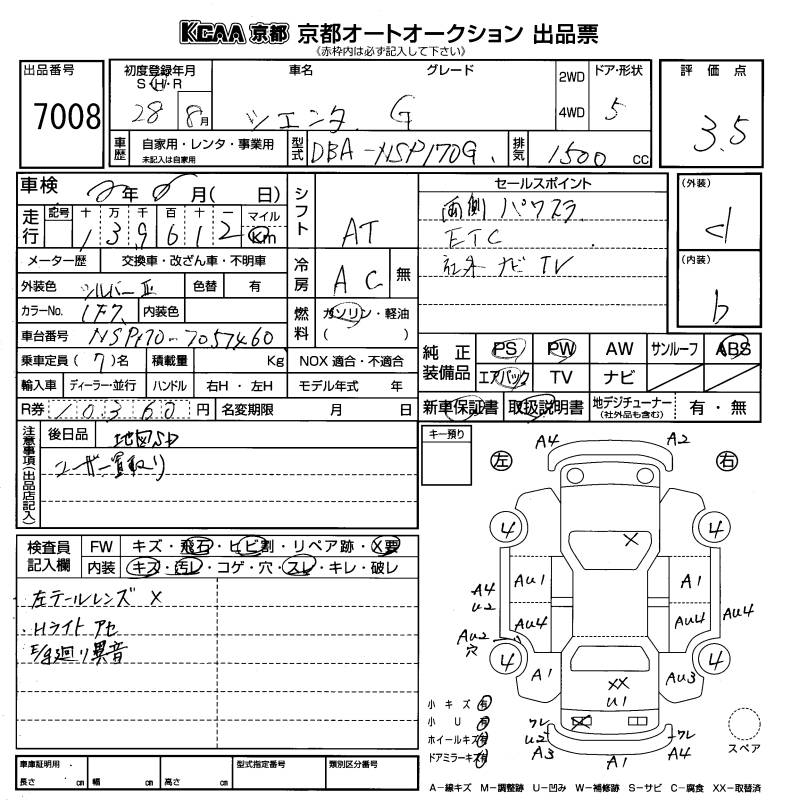 KCAA 京都 京都オートオークション 出品票
《赤枠内は必ず記入して下さい》
出品番号 初度登録年月 車名 グレード 2WD ドア・形状 評価点
S・H・R
7008 28 8月 シエンタ G 4WD 5 3.5
車歴 自家用・レンタ・事業用 型式 DBA-NSP170G 排気 1500 cc
未記入は自家用
車検 年 月( 日) シフト AT セールスポイント (外装)
走行 記号 十 万 千 百 十 一 マイル 両側パワスラ d
1 3 9 6 1 2 Km ETC
メーター歴 交換車・改ざん車・不明車 冷房 AC 無 社外ナビTV (内装)
外装色 シルバーII 色替 有 b
カラーNo. 1F7 内装色 燃料 ガソリン・軽油
車台番号 NSP170-7057460 ( )
乗車定員 (7)名 積載量 Kg NOX 適合・不適合 純正装備品 PS PW AW サンルーフ ABS
輸入車 ディーラー・並行 ハンドル 右H・左H モデル年式 年 エアバック TV ナビ
R券 10360 円 名変期限 月 日 新車保証書 取扱説明書 地デジチューナー (社外品も含む) 有・無
注意事項(出品店記入) 後日品 地図SD キー預り
ユーザー買取り
A4 A2
左 右
4 4
検査員記入欄 FW キズ・飛石・ヒビ割・リペア跡・X要 X
内装 キズ・汚レ・コゲ・穴・スレ・キレ・破レ
左テールレンズ X
AU1 A1
A4 U2 AU4 AU4 AU4
・Hライト アセ
AU2 穴
F/R廻り異音
4 4
A1 AU3
XX U1
小キズ 有
小U 有
ホイールキズ 有
ドアミラーキズ 有
ワレ U2 A3 A1 ワレ A4
スペア
車庫証明用 長さ cm 幅 cm 高さ cm 型式指定番号 類別区分番号
A−線キズ M−調整跡 U−凹み W−補修跡 S−サビ C−腐食 XX−取替済